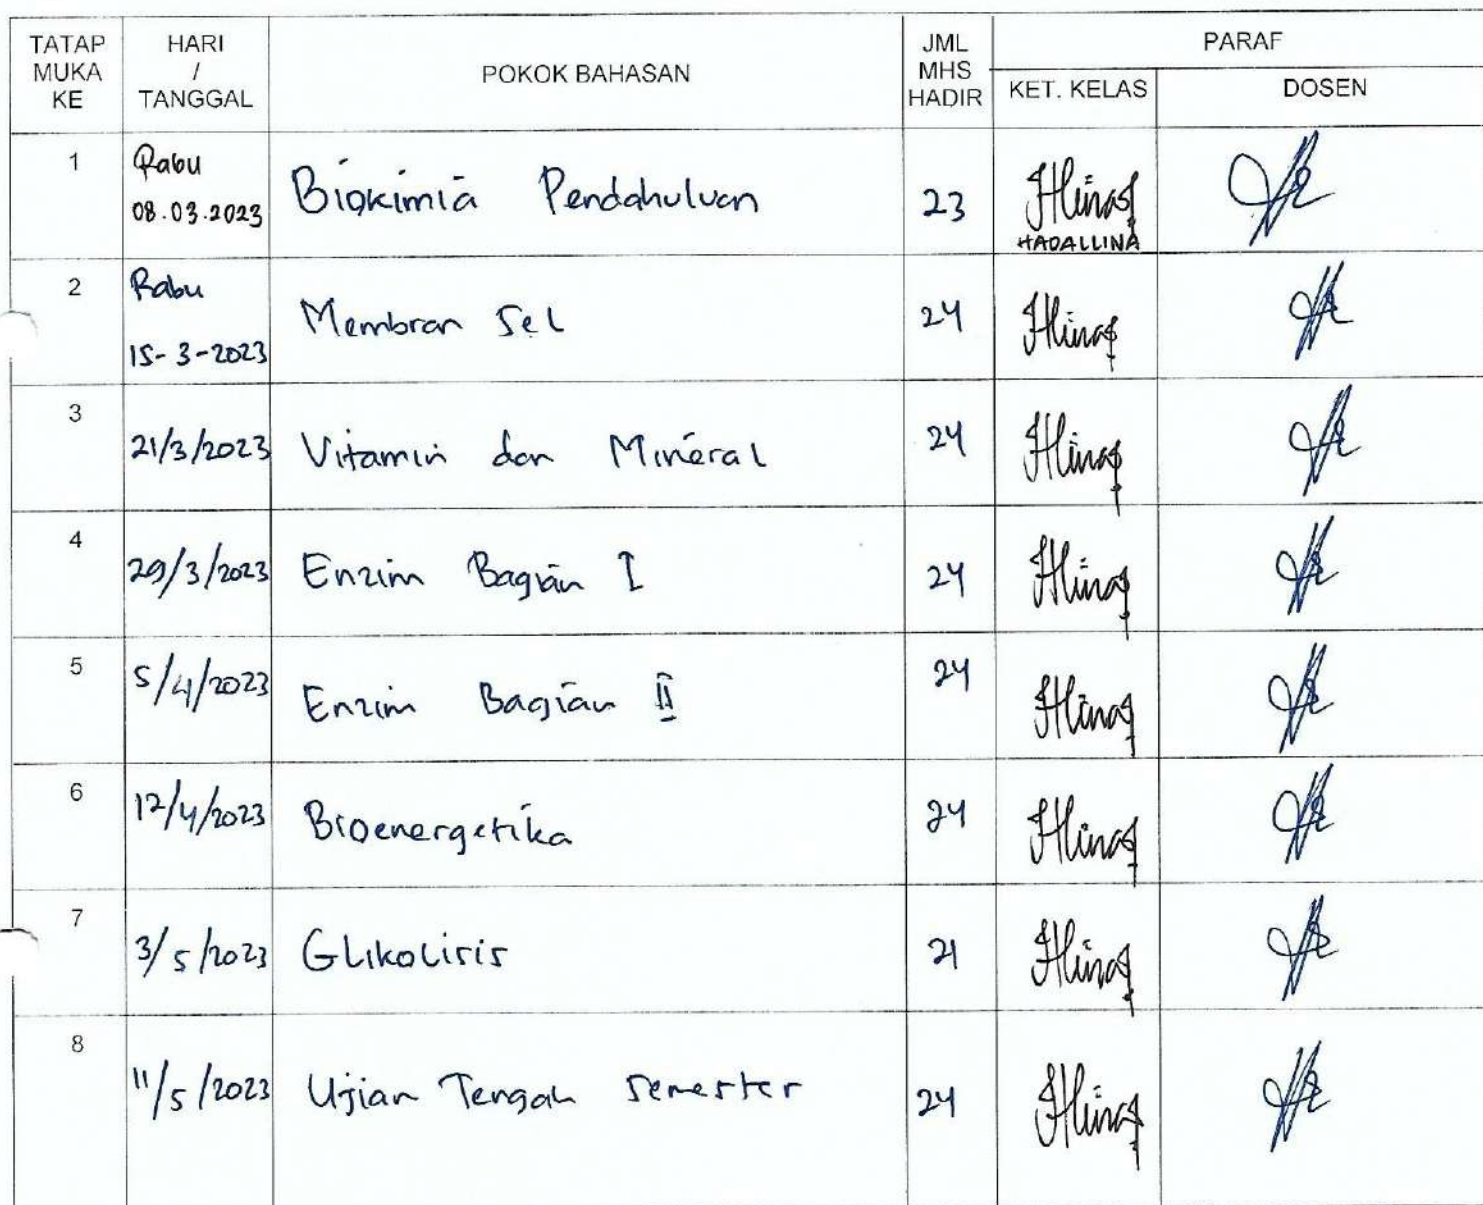 TATAP MUKA KE
HARI / TANGGAL
POKOK BAHASAN
JML MHS HADIR
PARAF
KET. KELAS
DOSEN
1 Rabu 08.03.2023 Biokimia Pendahuluan 23
HADALLINA
2 Rabu 15-3-2023 Membran Sel 24
3 21/3/2023 Vitamin dan Mineral 24
4 29/3/2023 Enzim Bagian I 24
5 5/4/2023 Enzim Bagian II 24
6 12/4/2023 Bioenergetika 24
7 3/5/2023 Glikolisis 21
8 11/5/2023 Ujian Tengah Semester 24